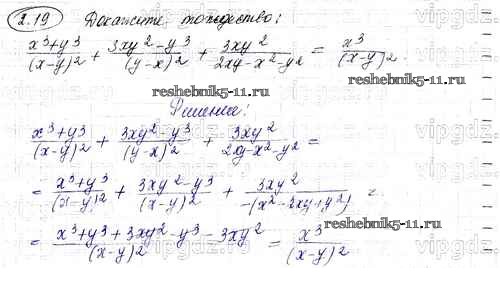 2.19 Докажите тождество:
(x³+y³)/(x-y)² + (3xy²-y³)/(y-x)² + 3xy²/(2xy-x²-y²) = x³/(x-y)².
reshebnik5-11.ru
reshebnik5-11.ru
Решение:
(x³+y³)/(x-y)² + (3xy²-y³)/(y-x)² + 3xy²/(2xy-x²-y²) =
= (x³+y³)/(x-y)² + (3xy²-y³)/(x-y)² + 3xy²/(-(x²-2xy+y²)) =
reshebnik5-11.ru
= (x³+y³+3xy²-y³-3xy²)/(x-y)² = x³/(x-y)²